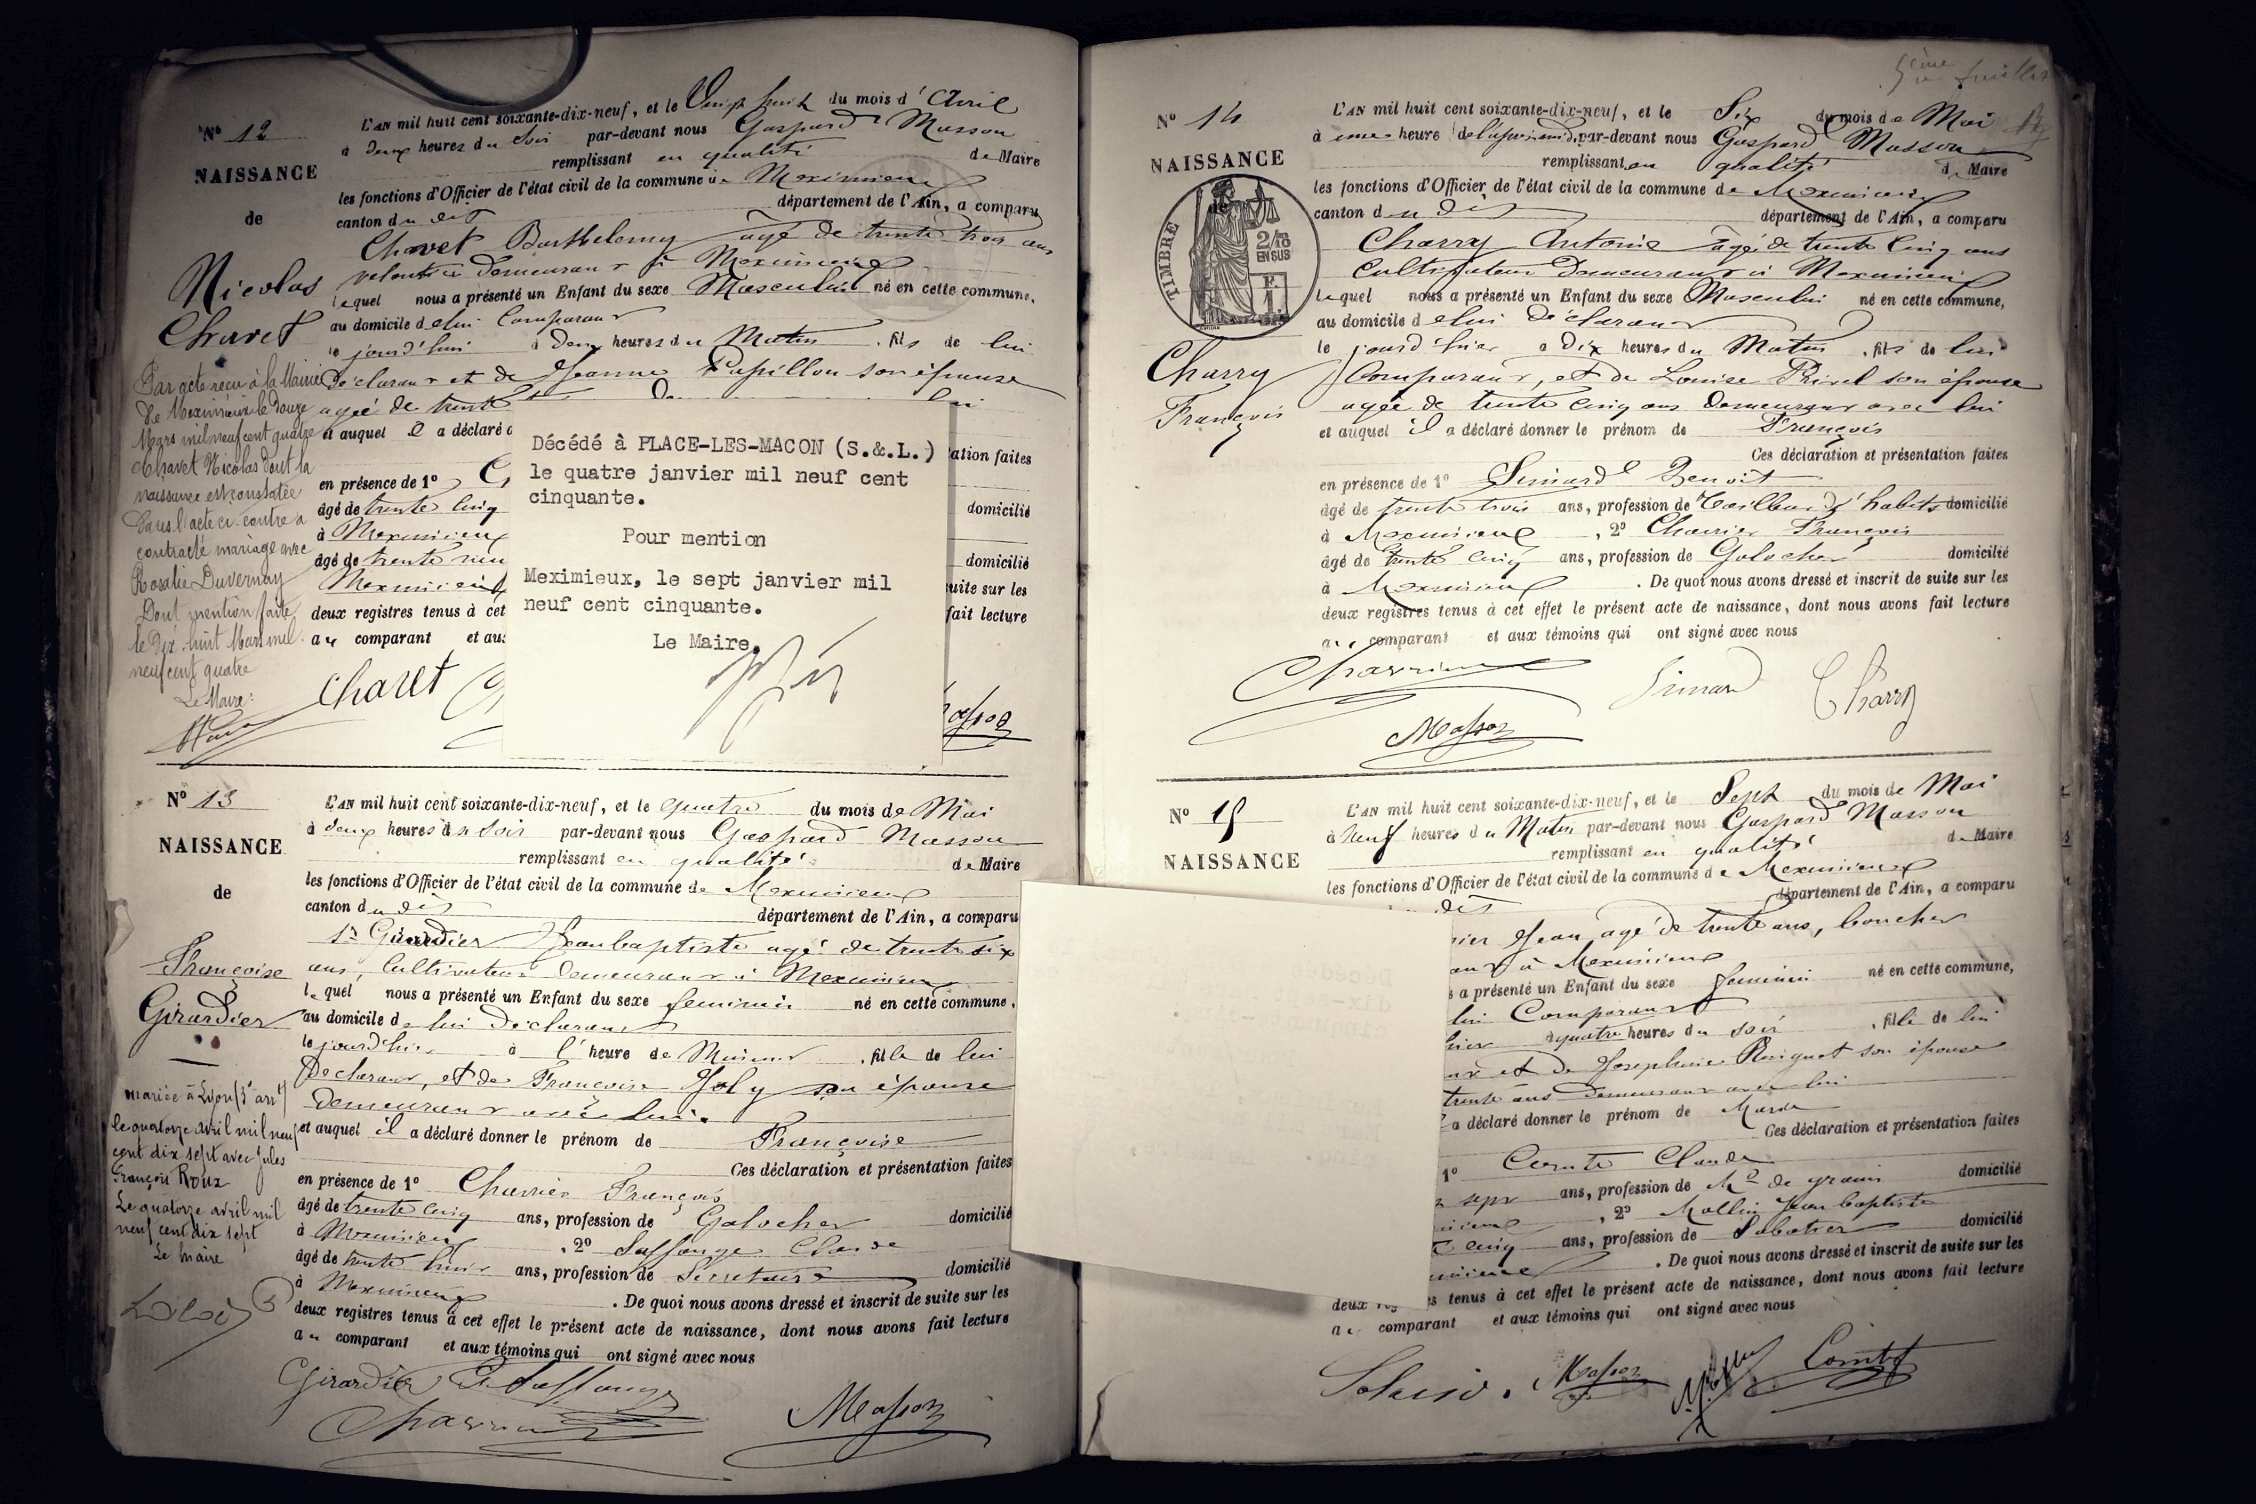 Nº 12
NAISSANCE
de
Nicolas
Chavet
Par acte reçu à la Mairie
de Meximieux le douze
Mars mil neuf cent quatre
Chavet Nicolas dont la
naissance est constatée
dans l'acte ci-contre a
contracté mariage avec
Rosalie Duvernay
Dont mention faite
le dix-huit Mars mil
neuf cent quatre
Le Maire:
L'AN mil huit cent soixante-dix-neuf, et le Vingt huit du mois d'Avril
à deux heures du Soir par-devant nous Gaspard Masson
remplissant en qualité de Maire
les fonctions d'Officier de l'état civil de la commune de Meximieux
canton du dit département de l'Ain, a comparu
Chavet Barthelemy agé de trente trois ans
demeurant à Meximieux
lequel nous a présenté un Enfant du sexe Masculin né en cette commune,
au domicile de lui Comparant
le jourd'hui à deux heures du Matin, fils de lui
Déclarant et de Jeanne Papillon son épouse
agée de trente
et auquel il a déclaré
ation faites
en présence de 1º
âgé de trente cinq domicilié
à Meximieux
âgé de trente domicilié
Meximieux suite sur les
deux registres tenus à cet fait lecture
au comparant et aux
Chavet
Masson
Décédé à PLACE-LES-MACON (S.&.L.)
le quatre janvier mil neuf cent
cinquante.
Pour mention
Meximieux, le sept janvier mil
neuf cent cinquante.
Le Maire,
Nº 13
NAISSANCE
de
Françoise
Girardier
mariée à Lyon (3e arrt)
le quatorze avril mil neuf
cent dix sept avec Jules
François Roux
Le quatorze avril mil
neuf cent dix sept
Le Maire
L'AN mil huit cent soixante-dix-neuf, et le quatre du mois de Mai
à deux heures du Soir par-devant nous Gaspard Masson
remplissant en qualité de Maire
les fonctions d'Officier de l'état civil de la commune de Meximieux
canton du dit département de l'Ain, a comparu
Girardier Jean baptiste agé de trente six
ans, Cultivateur demeurant à Meximieux
lequel nous a présenté un Enfant du sexe feminin né en cette commune,
au domicile de lui Déclarant
le jourd'hui à l'heure de Minuit, fille de lui
Déclarant, et de Françoise Joly son épouse
demeurant avec lui.
et auquel il a déclaré donner le prénom de Françoise
Ces déclaration et présentation faites
en présence de 1º Charrier François
âgé de trente cinq ans, profession de Galocher domicilié
à Meximieux, 2º Laffonge Claude
âgé de trente huit ans, profession de Secretaire domicilié
à Meximieux. De quoi nous avons dressé et inscrit de suite sur les
deux registres tenus à cet effet le présent acte de naissance, dont nous avons fait lecture
au comparant et aux témoins qui ont signé avec nous
Girardier
Charrier
Masson
5ème feuillet
Nº 14
NAISSANCE
de
TIMBRE
2/10
EN SUS
Charry
François
L'AN mil huit cent soixante-dix-neuf, et le Six du mois de Mai
à une heure de l'après midi, par-devant nous Gaspard Masson
remplissant en qualité de Maire
les fonctions d'Officier de l'état civil de la commune de Meximieux
canton du dit département de l'Ain, a comparu
Charry Antoine agé de trente cinq ans
Cultivateur Demeurant à Meximieux
lequel nous a présenté un Enfant du sexe Masculin né en cette commune,
au domicile de lui Déclarant
le jourd'hier à Dix heures du Matin, fils de lui
Comparant, et de Louise Privel son épouse
agée de trente cinq ans Demeurant avec lui
et auquel il a déclaré donner le prénom de François
Ces déclaration et présentation faites
en présence de 1º Simard Benoit
âgé de trente trois ans, profession de Tailleur d'habits domicilié
à Meximieux, 2º Charrier François
âgé de trente cinq ans, profession de Galocher domicilié
à Meximieux. De quoi nous avons dressé et inscrit de suite sur les
deux registres tenus à cet effet le présent acte de naissance, dont nous avons fait lecture
au comparant et aux témoins qui ont signé avec nous
Charrier Simard Charry
Masson
Nº 15
NAISSANCE
L'AN mil huit cent soixante-dix-neuf, et le Sept du mois de Mai
à Neuf heures du Matin par-devant nous Gaspard Masson
remplissant en qualité de Maire
les fonctions d'Officier de l'état civil de la commune de Meximieux
dit département de l'Ain, a comparu
Jean agé de trente ans, boucher
à Meximieux
a présenté un Enfant du sexe feminin né en cette commune,
lui Comparant
à quatre heures du soir, fille de lui
et de Josephine Ruignet son épouse
trente ans Demeurant avec lui
a déclaré donner le prénom de Marie
Ces déclaration et présentation faites
1º Comte Claude
sept ans, profession de Md de grains domicilié
, 2º Mollin Jean baptiste
cinq ans, profession de Sabotier domicilié
. De quoi nous avons dressé et inscrit de suite sur les
deux tenus à cet effet le présent acte de naissance, dont nous avons fait lecture
au comparant et aux témoins qui ont signé avec nous
Masson Comte